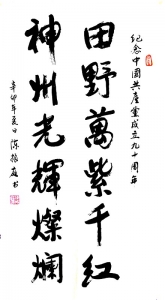 纪念中國共產黨成立九十周年
田野萬紫千红
神州光輝燦爛
辛卯年夏日陈振庭书